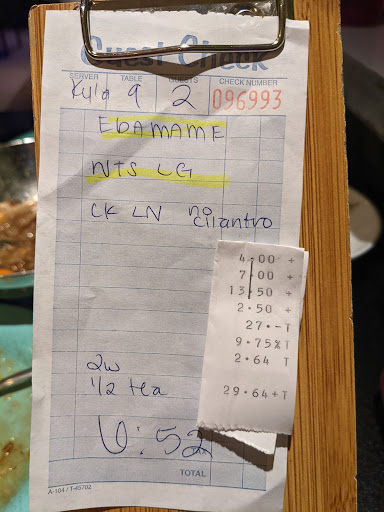 Guest Check
SERVER TABLE GUESTS CHECK NUMBER
Kyla 9 2 096993
EDAMAME
NTS LG
CK LN no cilantro
4.00 +
7.00 +
13.50 +
2.50 +
27.-T
9.75%T
2.64 T
29.64+T
2w
1/2 tea
6:52
TAX
TOTAL
A-104 / T-45702